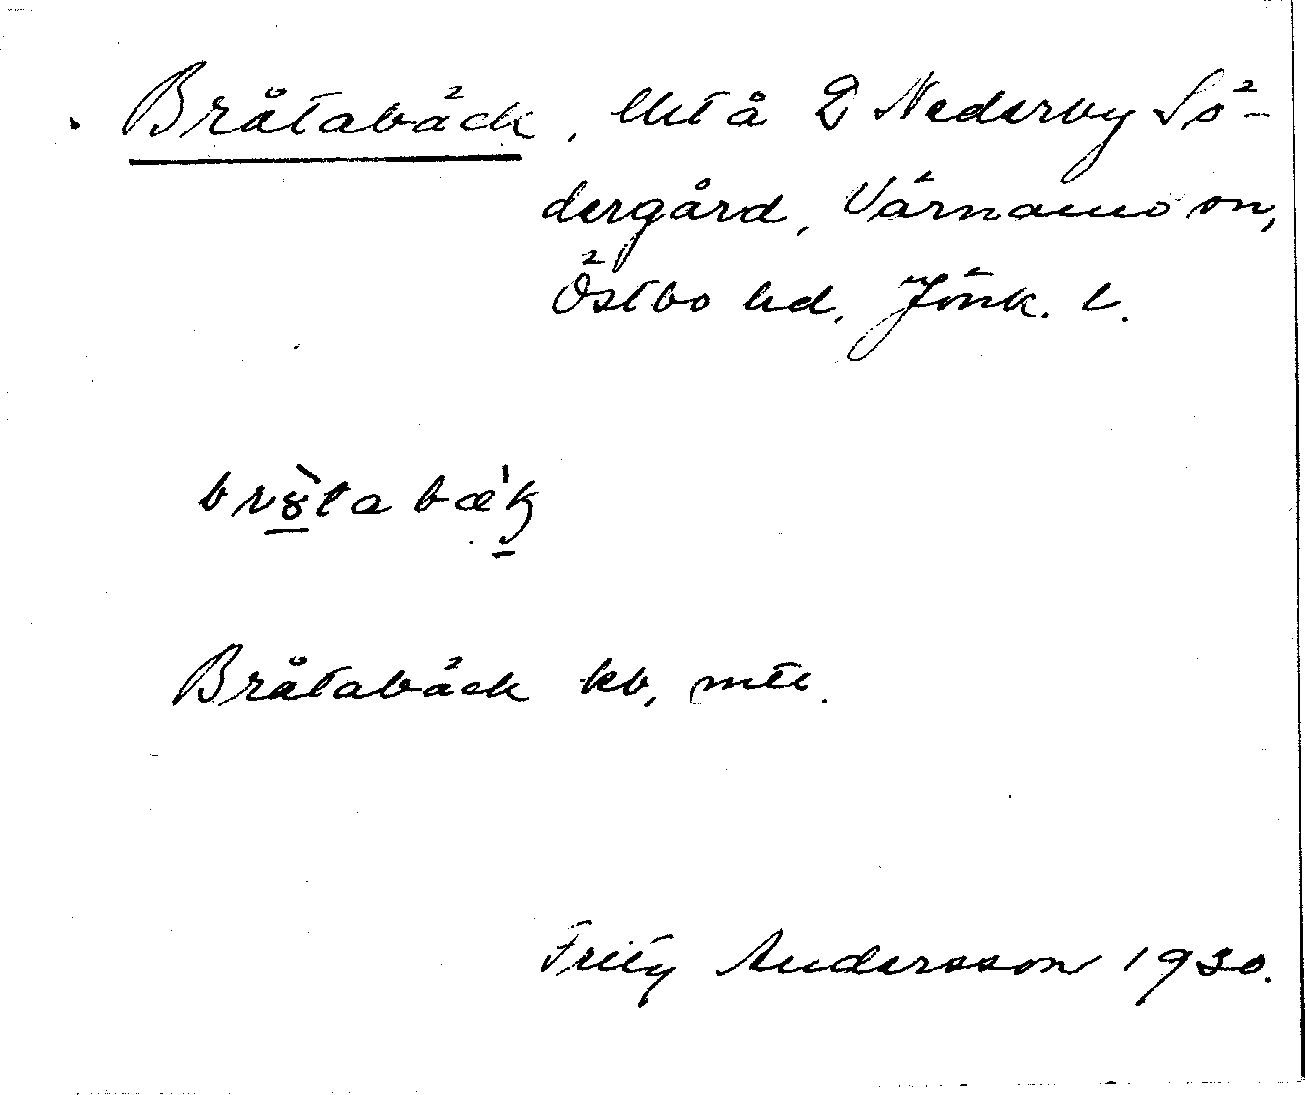 Bråtabäck, lht å 2 Nederby Sö-
dergård, Värnamo sn,
Östbo hd, Jönk. l.
br8̀tabæ'k
Bråtabäck kb, mtl.
Fritz Andersson 1930.